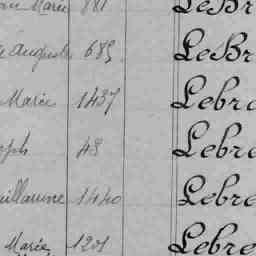 Marie 881 LeBr
Auguste 685 LeBr
Marie 1437 Lebr
oph 48 Lebre
uillaume 1440 Lebre
Marie 1201 Lebre